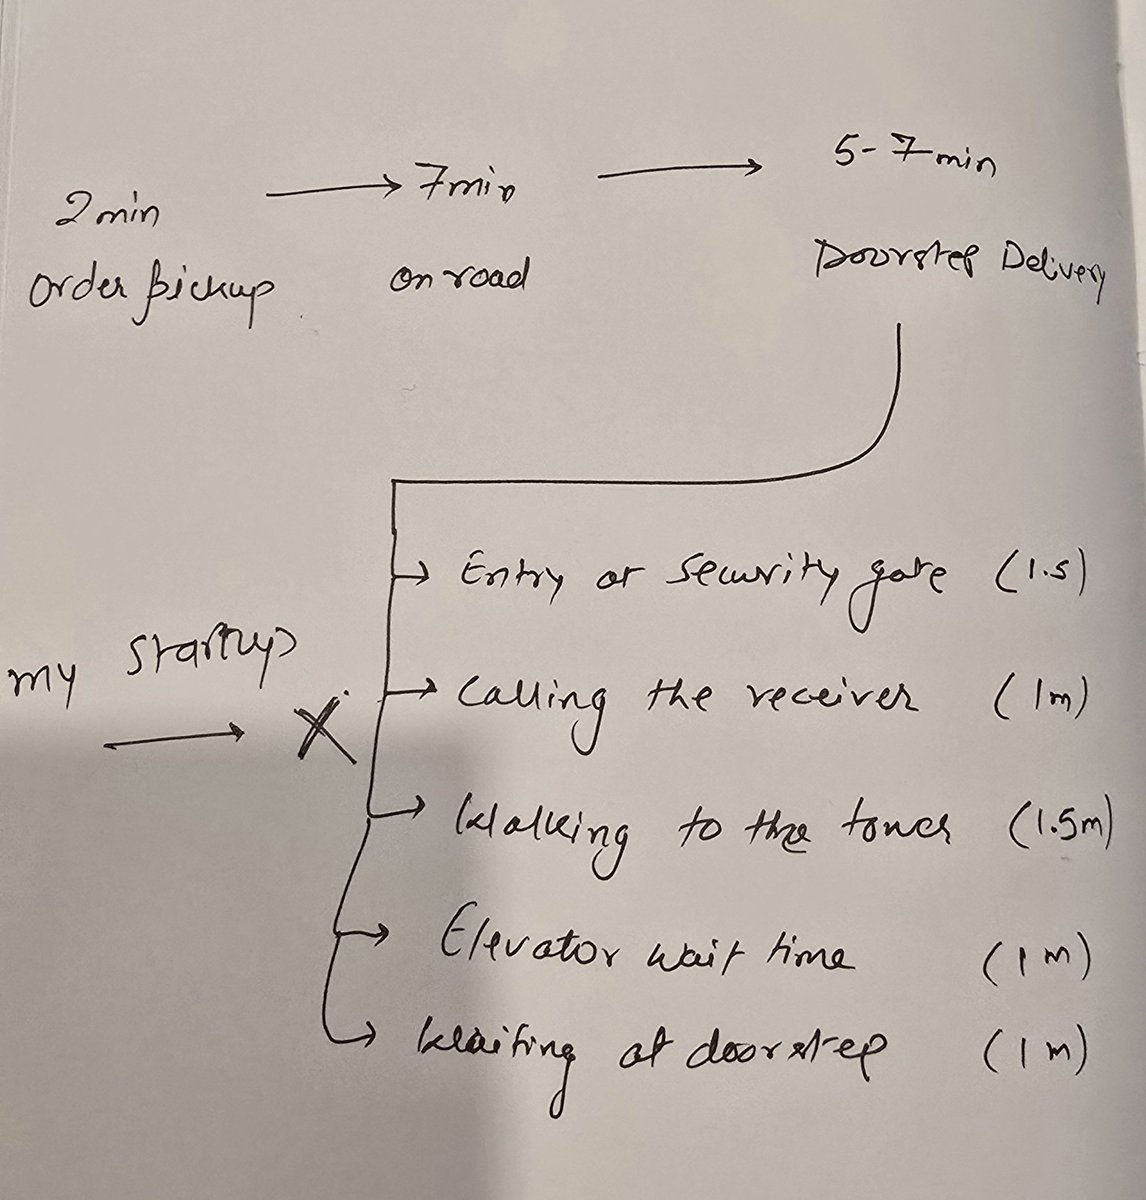 2 min → 7 min → 5-7 min
order pickup on road Doorstep Delivery
Entry at security gate (1.5)
my startup → X
Calling the receiver (1m)
Walking to the tower (1.5m)
Elevator wait time (1m)
Waiting at doorstep (1m)